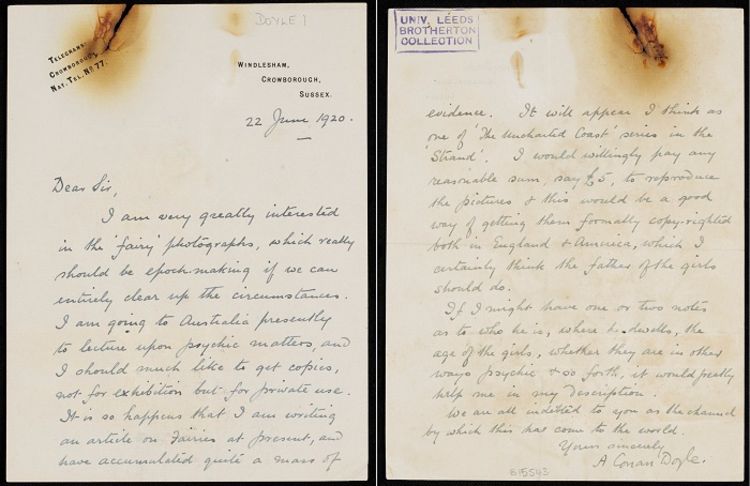 DOYLE 1
TELEGRAMS:
CROWBOROUGH.
NAT. TEL. NO 77.
WINDLESHAM,
CROWBOROUGH,
SUSSEX.
22 June 1920.
Dear Sir,
I am very greatly interested
in the 'fairy' photographs, which really
should be epoch-making if we can
entirely clear up the circumstances.
I am going to Australia presently
to lecture upon psychic matters, and
I should much like to get copies,
not for exhibition but for private use.
It is so happens that I am writing
an article on Fairies at present, and
have accumulated quite a mass of
UNIV. LEEDS
BROTHERTON
COLLECTION
evidence. It will appear I think as
one of 'The Uncharted Coast' series in the
'Strand'. I would willingly pay any
reasonable sum, say £5, to reproduce
the pictures & this would be a good
way of getting them formally copy-righted
both in England & America, which I
certainly think the father of the girls
should do.
If I might have one or two notes
as to who he is, where he dwells, the
age of the girls, whether they are in other
ways psychic & so forth, it would greatly
help me in my description.
We are all indebted to you as the channel
by which this has come to the world.
Yours sincerely
A Conan Doyle.
615543